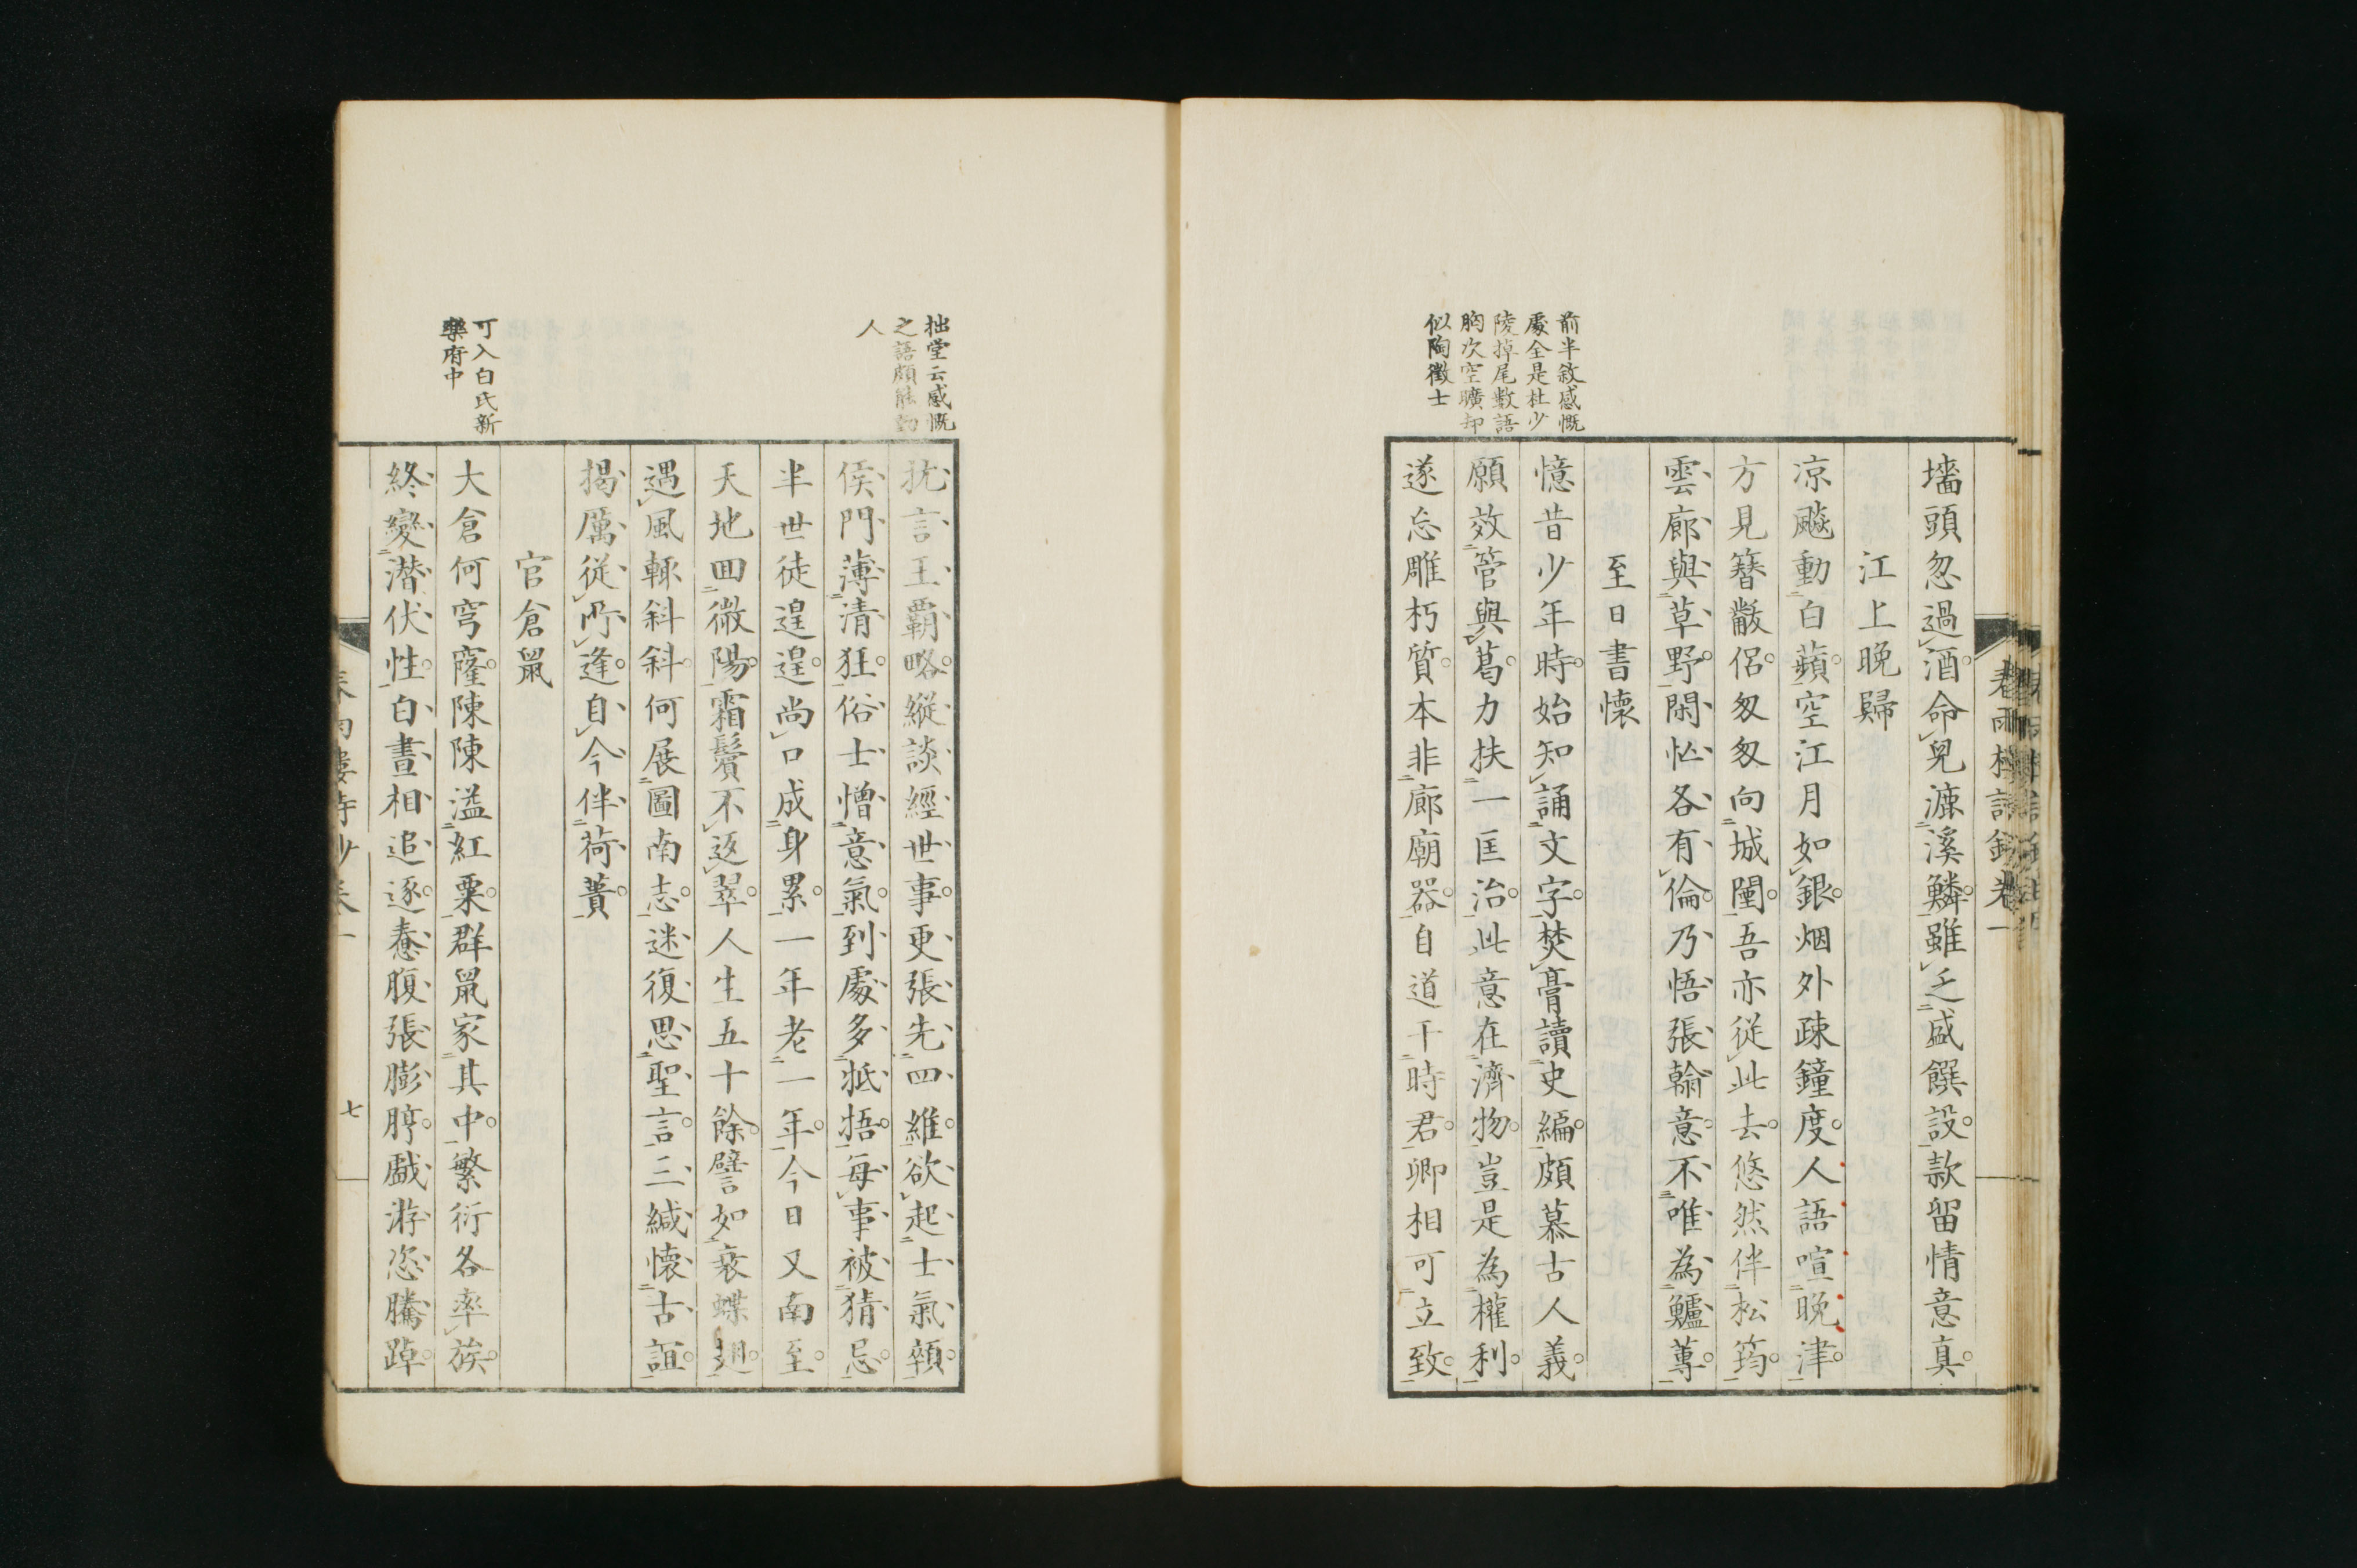 墻頭忽過酒命兒漉溪鱗雖乏盛饌設款留情意真
江上晚歸
凉飈動白蘋空江月如銀烟外疎鐘度人語喧晚津
方見簪黻侶匆匆向城闉吾亦從此去悠然伴松筠
雲廊與草野閑忙各有倫乃悟張翰意不唯為鱸蓴
至日書懷
前半敘感慨
處全是杜少
陵掉尾數語
胸次空曠却
似陶徵士
憶昔少年時始知誦文字焚膏讀史編頗慕古人義
願效管與葛力扶一匡治此意在濟物豈是為權利
遂忘雕朽質本非廊廟器自道干時君卿相可立致
拙堂云感慨
之語頗能動
人
抗言王覇略縱談經世事更張先四維欲起士氣顇
侯門薄清狂俗士憎意氣到處多牴捂每事被猜忌
半世徒遑遑尚口成身累一年老一年今日又南至
天地回微陽霜鬢不返翠人生五十餘譬如衰蝶翅
遇風輒斜斜何展圖南志迷復思聖言三緘懷古誼
揭厲從所逢自今伴荷蕢
官倉鼠
可入白氏新
樂府中
大倉何穹窿陳陳溢紅粟群鼠家其中繁衍各率族
終變潜伏性白晝相追逐惷腹張膨脝戲游恣騰踔
春雨樓詩鈔卷一
七